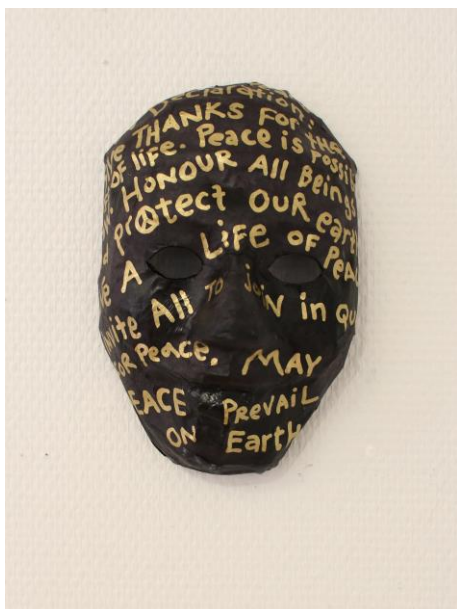 Declaration:
THANKS FOR THE
OF Life. Peace is Possi
HONOUR All Beings
Protect OUR earth
A Life OF PEA
nvite All TO joIN in qu
OR Peace. MAY
EACE PREVAIL
ON Earth